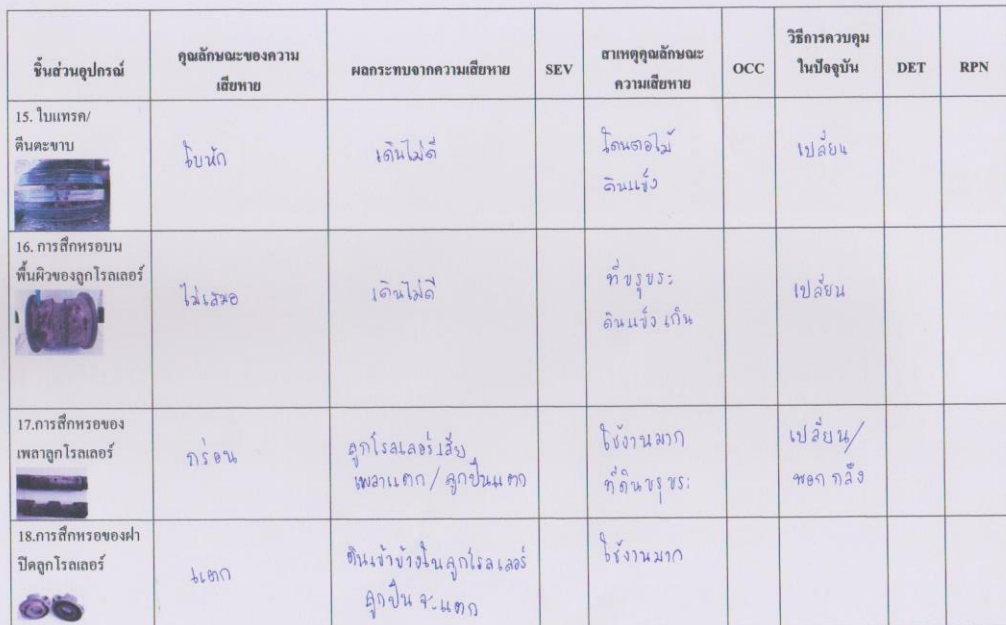 ชิ้นส่วนอุปกรณ์
คุณลักษณะของความ
เสียหาย
ผลกระทบจากความเสียหาย
SEV
สาเหตุคุณลักษณะ
ความเสียหาย
OCC
วิธีการควบคุม
ในปัจจุบัน
DET
RPN
15. ใบแทรค/
ตีนตะขาบ
ใบหัก
เดินไม่ดี
โดนตอไม้
ดินแข็ง
เปลี่ยน
16. การสึกหรอบน
พื้นผิวของลูกโรลเลอร์
ไม่เสมอ
เดินไม่ดี
ที่ขรุขระ
ดินแข็งเกิน
เปลี่ยน
17.การสึกหรอของ
เพลาลูกโรลเลอร์
กร่อน
ลูกโรลเลอร์เสีย
เพลาแตก / ลูกปืนแตก
ใช้งานมาก
ที่ดินขรุขระ
เปลี่ยน/
พอก กลึง
18.การสึกหรอของฝา
ปิดลูกโรลเลอร์
แตก
ดินเข้าข้างในลูกโรลเลอร์
ลูกปืนจะแตก
ใช้งานมาก